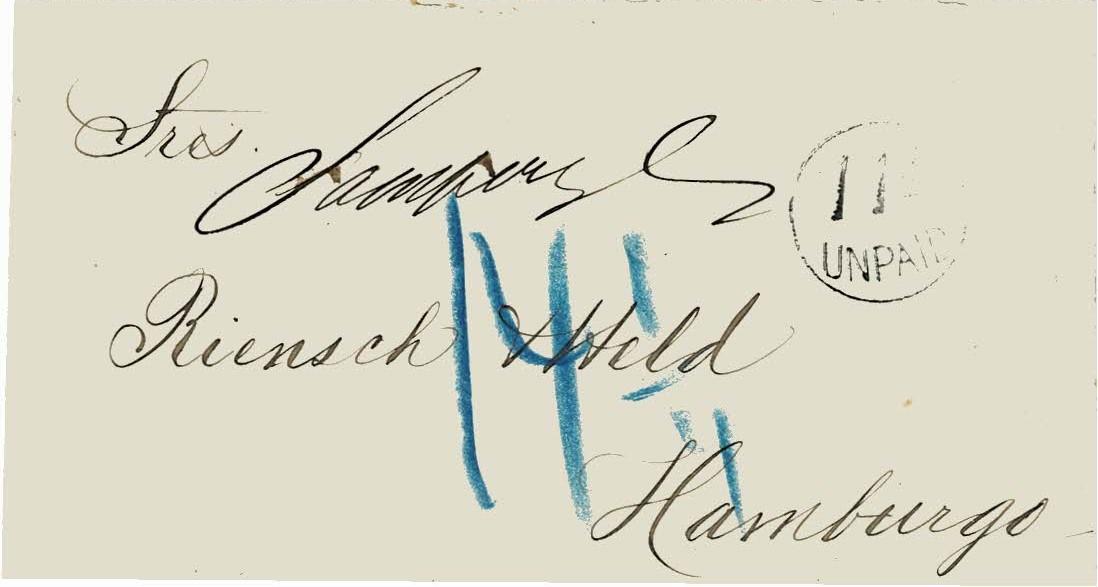 Sres.
11
UNPAID
14
Riensch & Held
11
Hamburgo